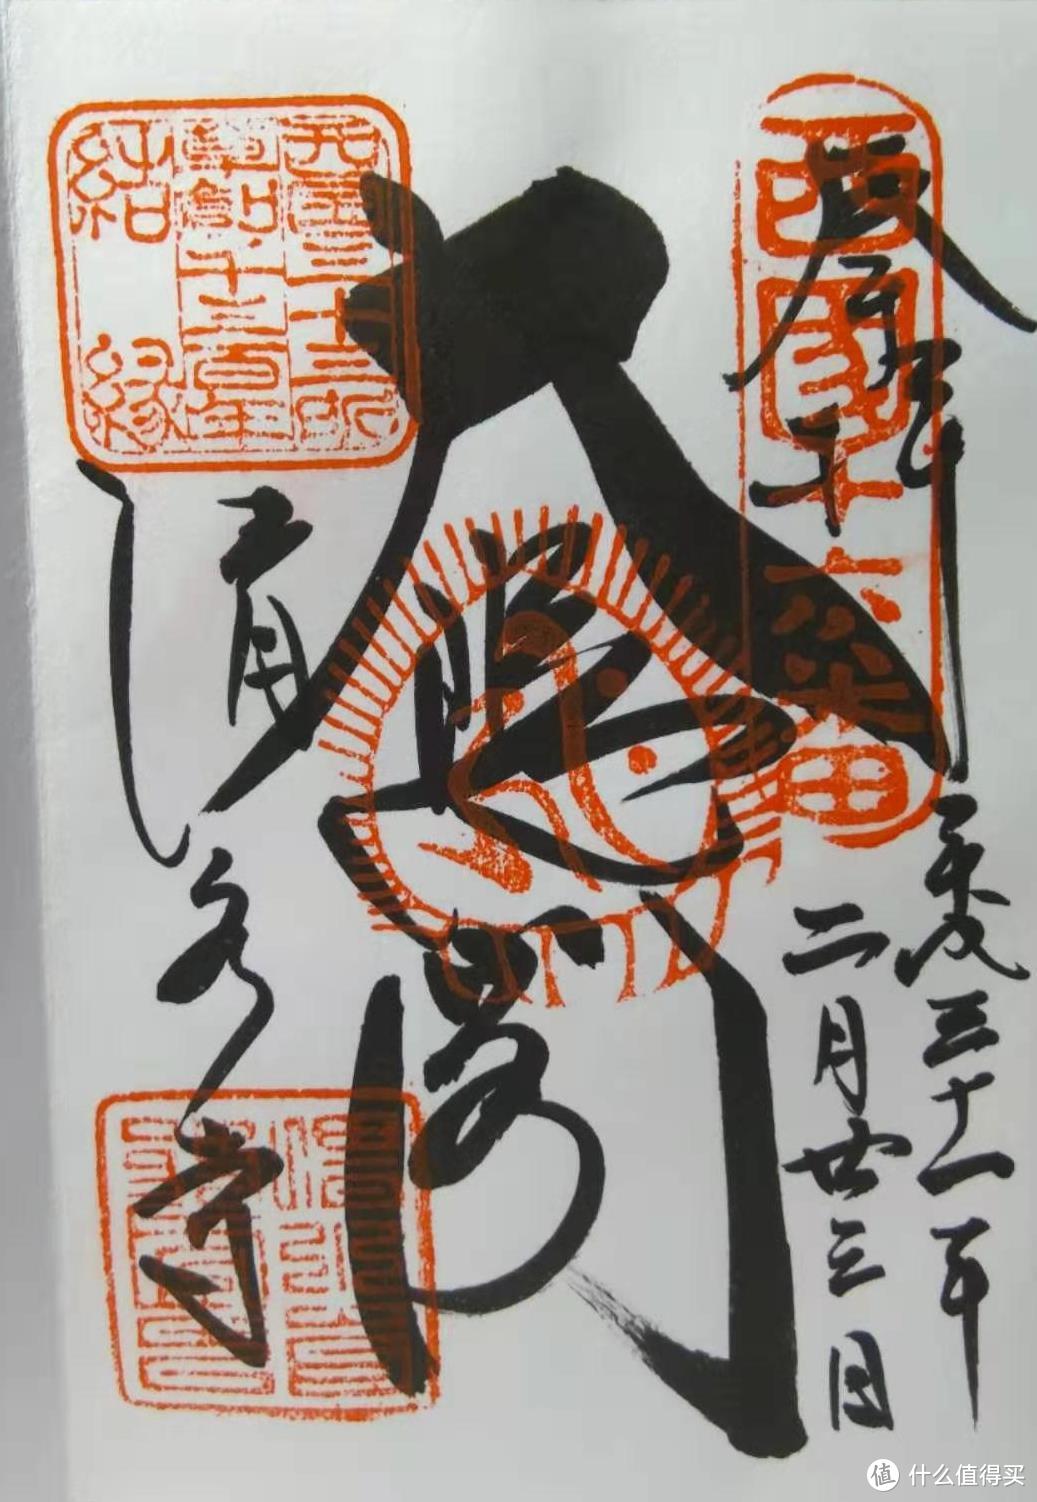 奉拝
平成三十一年
二月廿三日
大悲閣
清水寺
西国十六番
西国三十三所
草創千三百年
結縁
值 什么值得买